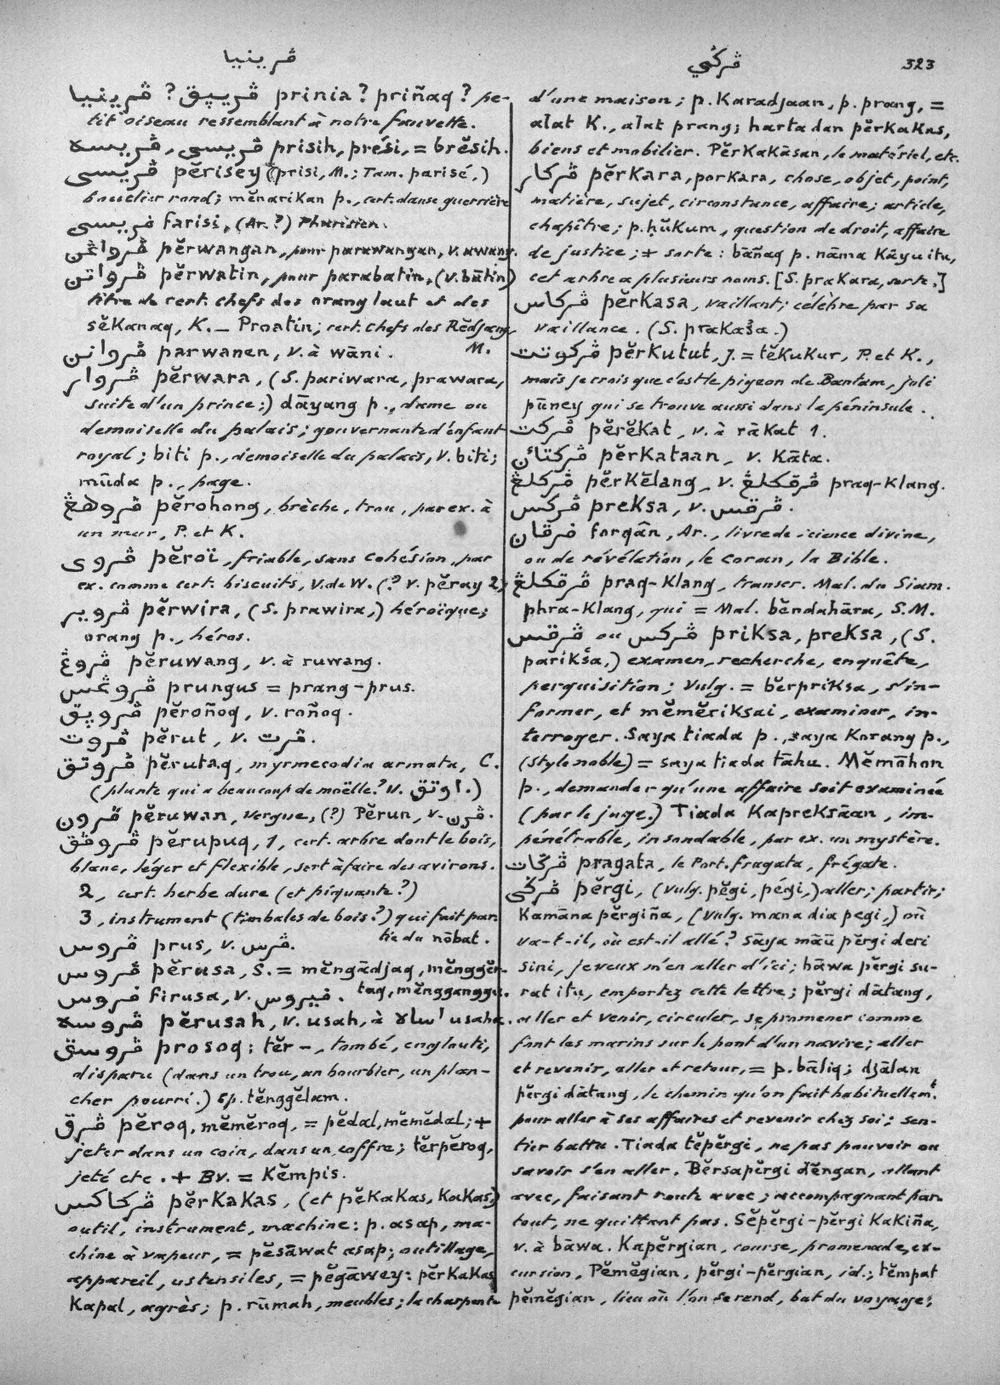 ڤرينيا
ڤرݢي 323
ڤرينيا ? ڤريڽق ? prinia? priñaq? pe-
tit oiseau ressemblant à notre fauvette.
ڤريسي, ڤريسه prisih, présị, = brĕsih.
ڤريسى pĕrisey (prisi, M.; Tam. parisé,)
bouclier rond; mĕnarikan p., cert. danse guerrière
فريسى farisi, (Ar.?) Pharisien.
ڤرواڠن pĕrwangan, pour parawangan, v. awang.
ڤرواتن pĕrwatin, pour parabatin, (v. bātin)
titre de cert. chefs des orang laut et des
sĕkanaq, K. _ Proatin; cert. chefs des Rĕdjang,
M.
ڤروانن parwanen, v. à wāni.
ڤروار pĕrwara, (S. pariwara, prawara,
suite d'un prince;) dāyang p., dame ou
demoiselle du palais; gouvernante d'enfant
royal; biti p., demoiselle du palais, v. biti;
mūda p., page.
ڤروهڠ pĕrohong, brèche, trou, par ex. à
un mur, P. et K.
ڤروى pĕroï, friable, sans cohésion, par
ex. comme cert. biscuits, V. de W. (? v. pĕray 2;)
ڤروير pĕrwira, (S. prawira,) héroïque;
orang p., héros.
ڤروڠ pĕruwang, v. à ruwang.
ڤروڠس prungus = prang-prus.
ڤروڽق pĕroñoq, v. roñoq.
ڤروت pĕrut, v. ڤرت.
ڤروتق pĕrutaq, myrmecodia armata, C.
(plante qui a beaucoup de moëlle? v. اوتق.)
ڤرون pĕruwan, vergue, (?) Pĕrun, v. ڤرن.
ڤروڤق pĕrupuq, 1, cert. arbre dont le bois,
blanc, léger et flexible, sert à faire des avirons.
2, cert. herbe dure (et piquante?)
3, instrument (timbales de bois?) qui fait par-
tie du nōbat.
ڤروس prus, v. ڤرس.
ڤروس pĕrusa, S. = mĕngādjaq, mĕnggĕr-
taq, mĕngganggu.
فروس firusa, v. فيروس.
ڤروسه pĕrusah, v. usah, à اساه usaha.
ڤروسق prosoq; tĕr-, tombé, englouti,
disparu (dans un trou, un bourbier, un plan-
cher pourri.) Ep. tĕnggĕlam.
ڤرق pĕroq, mĕmĕroq, = pĕdal, mĕmĕdal; +
jeter dans un coin, dans un coffre; tĕrpĕroq,
jeté etc. + Bv. = Kĕmpis.
ڤركاكس pĕrkakas, (et pĕkakas, kakas;)
outil, instrument, machine: p. asap, ma-
chine à vapeur, = pĕsāwat asap; outillage,
appareil, ustensiles, = pĕgāwey: pĕrkakas
kapal, agrès; p. rūmah, meubles; la charpente
d'une maison; p. karadjaan, p. prang, =
alat K., alat prang; harta dan pĕrkakas,
biens et mobilier. Pĕrkakāsan, le matériel, etc.
ڤركار pĕrkara, porkara, chose, objet, point,
matière, sujet, circonstance, affaire; article,
chapître; p. ḥūkum, question de droit, affaire
de justice; + sorte: bāñaq p. nāma kāyu itu,
cet arbre a plusieurs noms. [S. prakara, sorte.]
ڤركاس pĕrkasa, vaillant; célèbre par sa
vaillance. (S. prakaśa.)
ڤركوتت pĕrkutut, J. = tĕkukur, P. et K.,
mais je crois que c'est le pigeon de Bantam, joli
pūney qui se trouve aussi dans la péninsule.
ڤركت pĕrĕkat, v. à rākat 1.
ڤركتائن pĕrkataan, v. kāta.
ڤركلڠ pĕrkĕlang, v. ڤرقكلڠ praq-klang.
ڤركس preksa, v. ڤرقس.
فرقان forqān, Ar., livre de science divine,
ou de révélation, le coran, la Bible.
ڤرقكلڠ praq-klang, transcr. Mal. du Siam.
phra-klang, qui = Mal. bĕndahāra, S.M.
ڤرقس ou ڤركس priksa, preksa, (S.
parikṣa,) examen, recherche, enquête,
perquisition; vulg. = bĕrpriksa, s'in-
former, et mĕmĕriksai, examiner, in-
terroger. Saya tiada p., saya korang p.,
(style noble) = saya tiada tāhu. Mĕmōhon
p., demander qu'une affaire soit examinée
(par le juge.) Tiada kapreksāan, im-
pénétrable, insondable, par ex. un mystère.
ڤرݢات pragata, le Port. fragata, frégate.
ڤرݢي pĕrgi, (vulg. pĕgi, pégi,) aller; partir;
kamāna pĕrgiña, (vulg. mana dia pegi,) où
va-t-il, où est-il allé? Sāya māū pĕrgi deri
sini, je veux m'en aller d'ici; bāwa pĕrgi su-
rat itu, emportez cette lettre; pĕrgi dātang,
aller et venir, circuler, se promener comme
font les marins sur le pont d'un navire; aller
et revenir, aller et retour, = p. bāliq; djālan
pĕrgi dātang, le chemin qu'on fait habituellemt
pour aller à ses affaires et revenir chez soi; sen-
tier battu. Tiada tĕpĕrgi, ne pas pouvoir ou
savoir s'en aller. Bĕrsapĕrgi dĕngan, allant
avec, faisant route avec; accompagnant par-
tout, ne quittant pas. Sĕpĕrgi-pĕrgi kakiña,
v. à bāwa. Kapĕrgian, course, promenade, ex-
cursion, Pĕmĕgian, pĕrgi-pĕrgian, id.; tĕmpat
pĕmĕgian, lieu où l'on se rend, but du voyage;